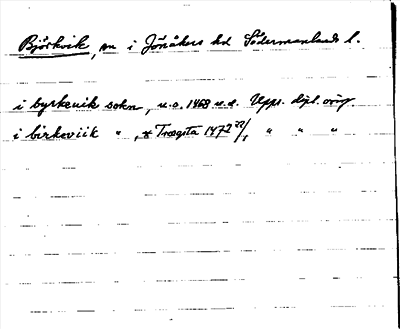 Björkvik, sn i Jönåkers hd Södermanlands l.
i byrkeuik sokn, u.o. 1468 u.d. Upps. dpl. orig.
i birkeviik " , * Trægsta 1472 22/1 " " "